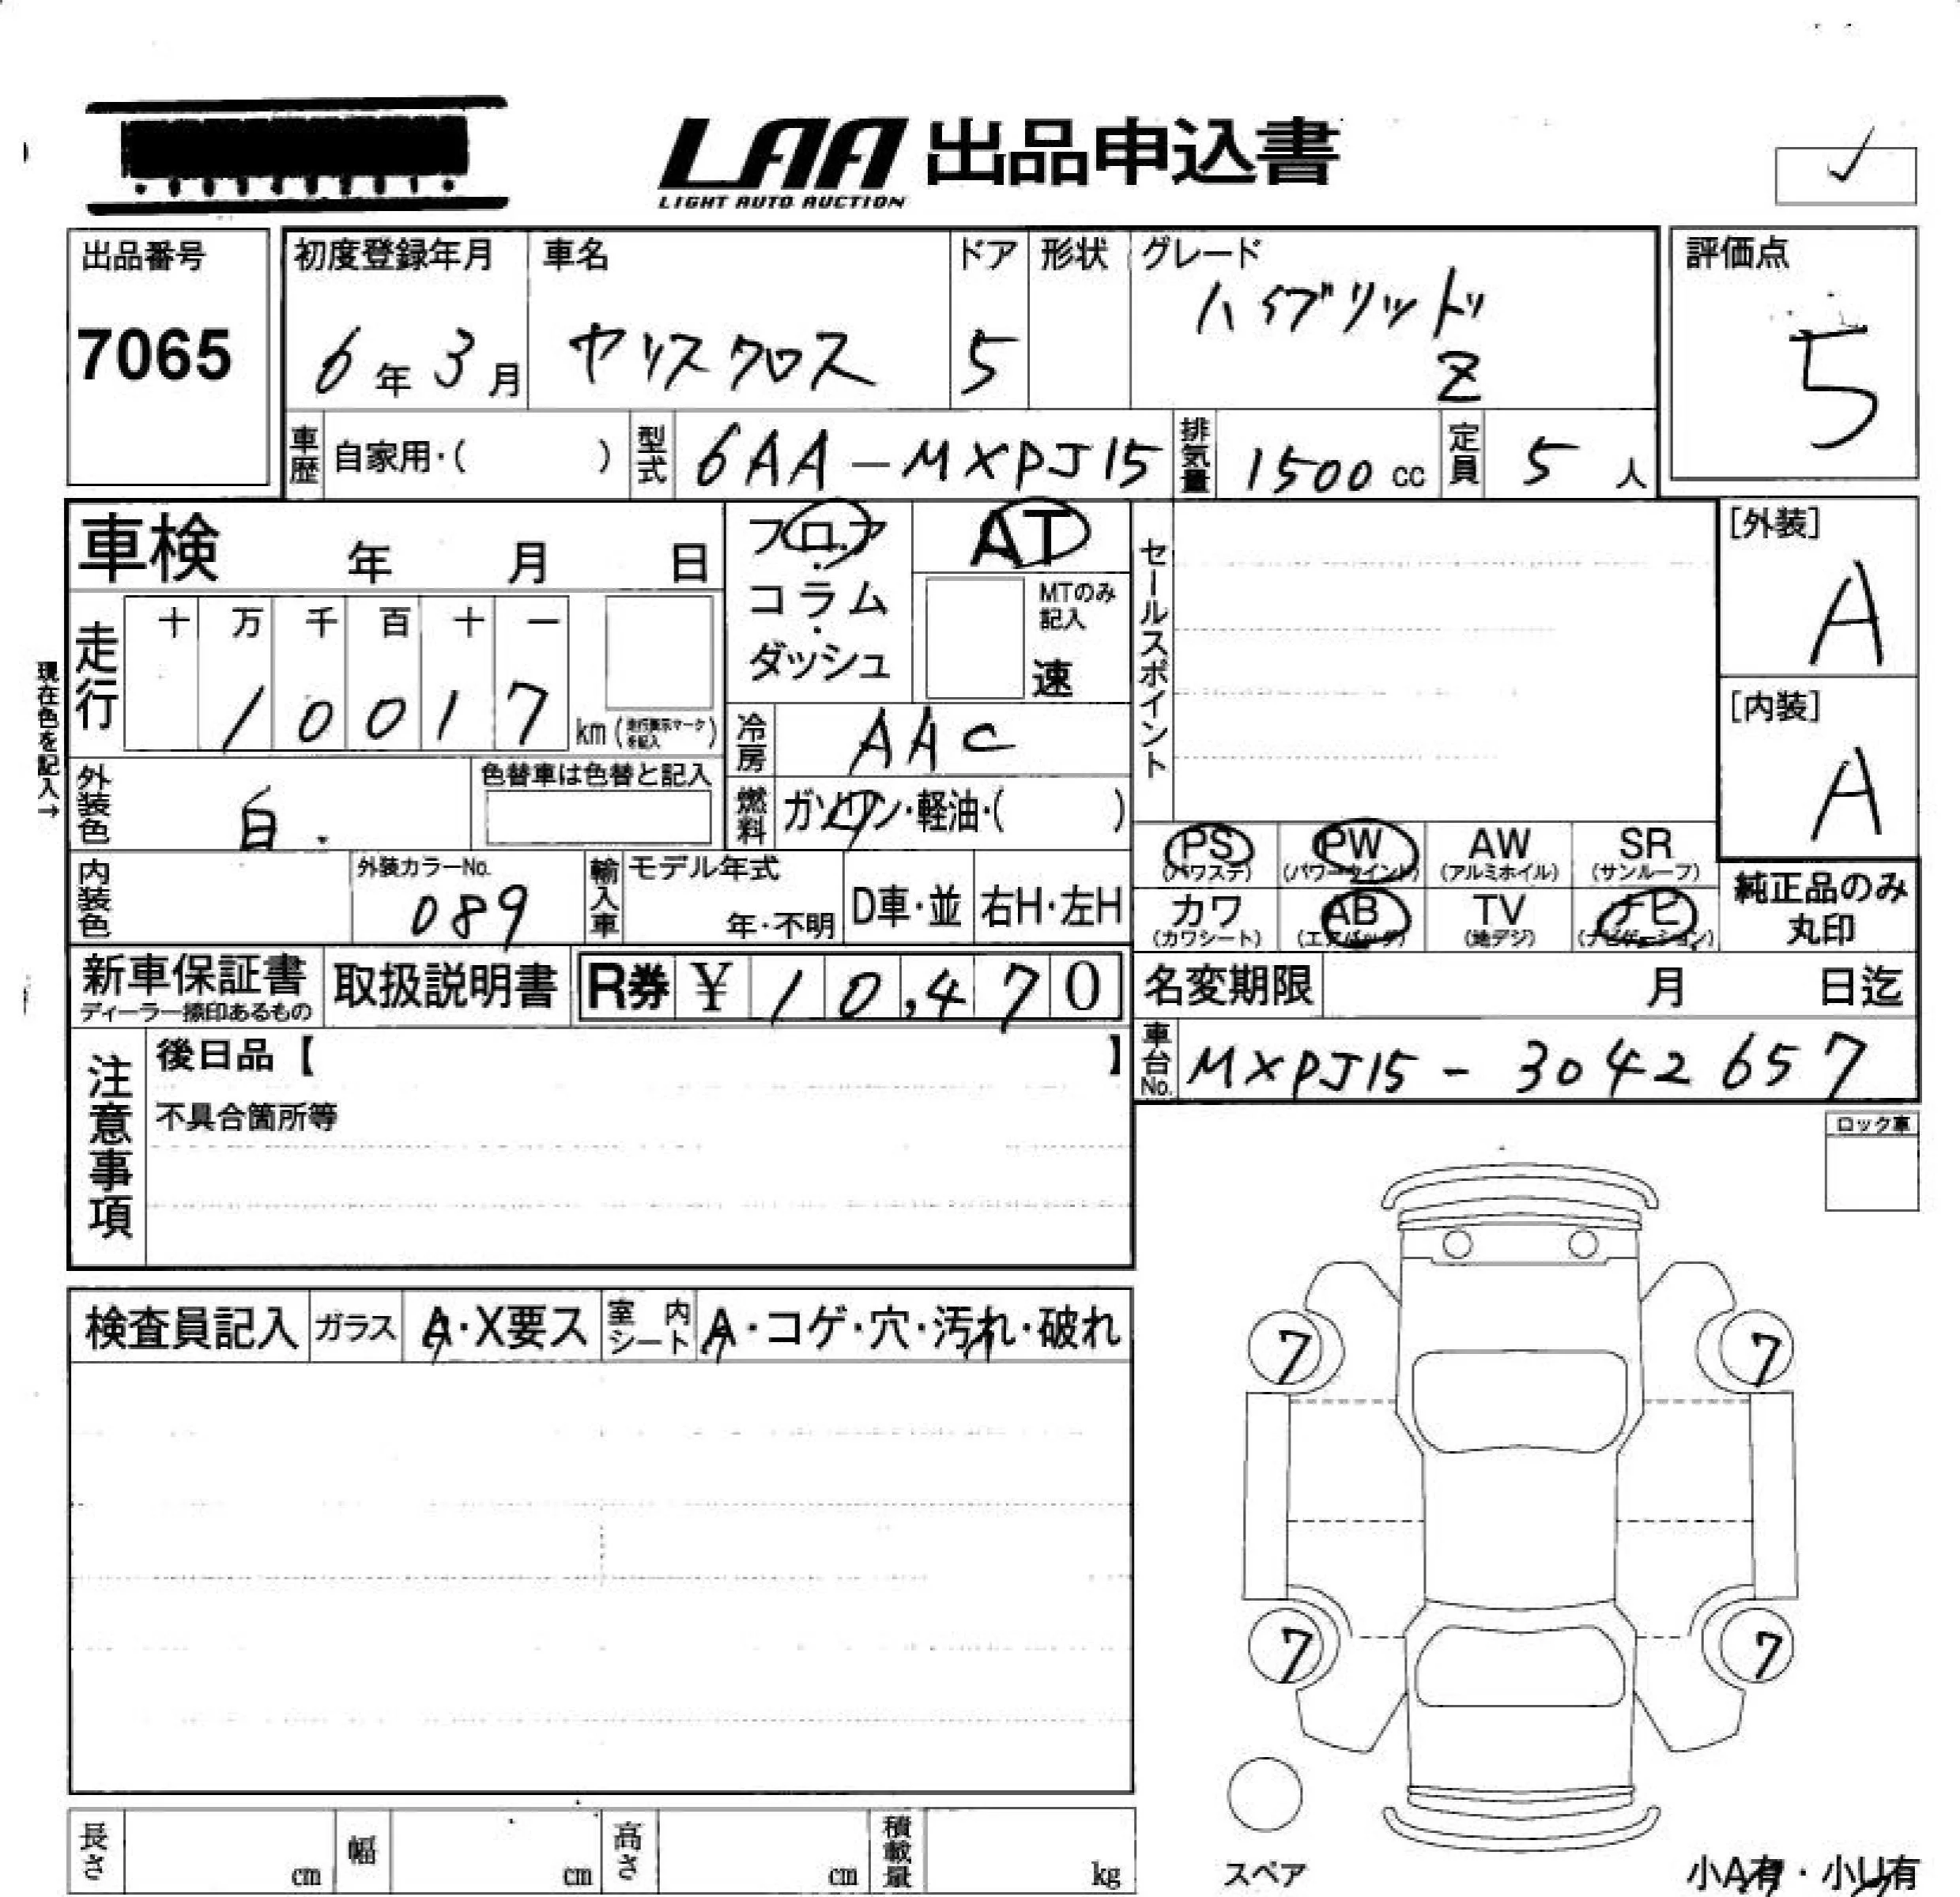 LAA 出品申込書
LIGHT AUTO AUCTION
✓
出品番号 7065
初度登録年月 6年3月
車名 ヤリスクロス
ドア 5
形状
グレード ハイブリッド Z
評価点 5
車歴 自家用・( )
型式 6AA-MXPJ15
排気量 1500cc
定員 5人
車検 年 月 日
フロア・コラム・ダッシュ
AT
MTのみ記入 速
セールスポイント
[外装] A
[内装] A
現在色を記入→
走行 十 万 千 百 十 一
10017 km (走行表示マークを記入)
冷房 AAC
外装色 白
色替車は色替と記入
燃料 ガソリン・軽油・( )
PS (パワステ) PW (パワーウインド) AW (アルミホイル) SR (サンルーフ)
カワ (カワシート) AB (エアバッグ) TV (地デジ) ナビ (ナビゲーション)
純正品のみ丸印
内装色
外装カラーNo. 089
輸入車 モデル年式 年・不明 D車・並 右H・左H
新車保証書 ディーラー捺印あるもの
取扱説明書
R券 ¥10,470
名変期限 月 日迄
車台No. MXPJ15-3042657
注意事項
後日品【 】
不具合箇所等
ロック車
検査員記入 ガラス A・X要ス 室内シート A・コゲ・穴・汚れ・破れ
7 7
7 7
スペア
小A有・小U有
長さ cm 幅 cm 高さ cm 積載量 kg